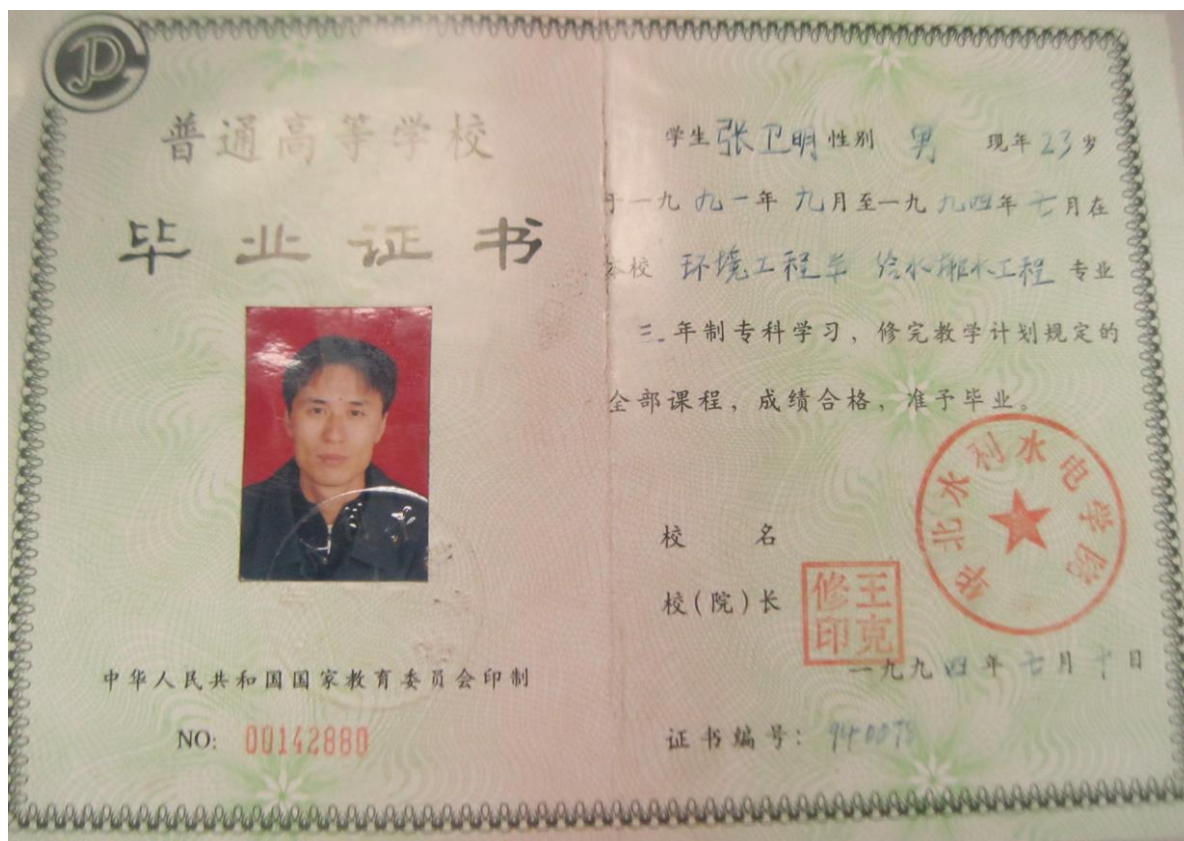 普通高等学校
毕业证书
中华人民共和国国家教育委员会印制
NO: 00142880
学生 张卫明 性别 男 现年 23 岁
于一九九一年九月至一九九四年七月在
本校 环境工程 给水排水工程 专业
三年制专科学习，修完教学计划规定的
全部课程，成绩合格，准予毕业。
华北水利水电学院
校 名
校(院)长
王克修印
一九九四年七月十日
证书编号: 940078